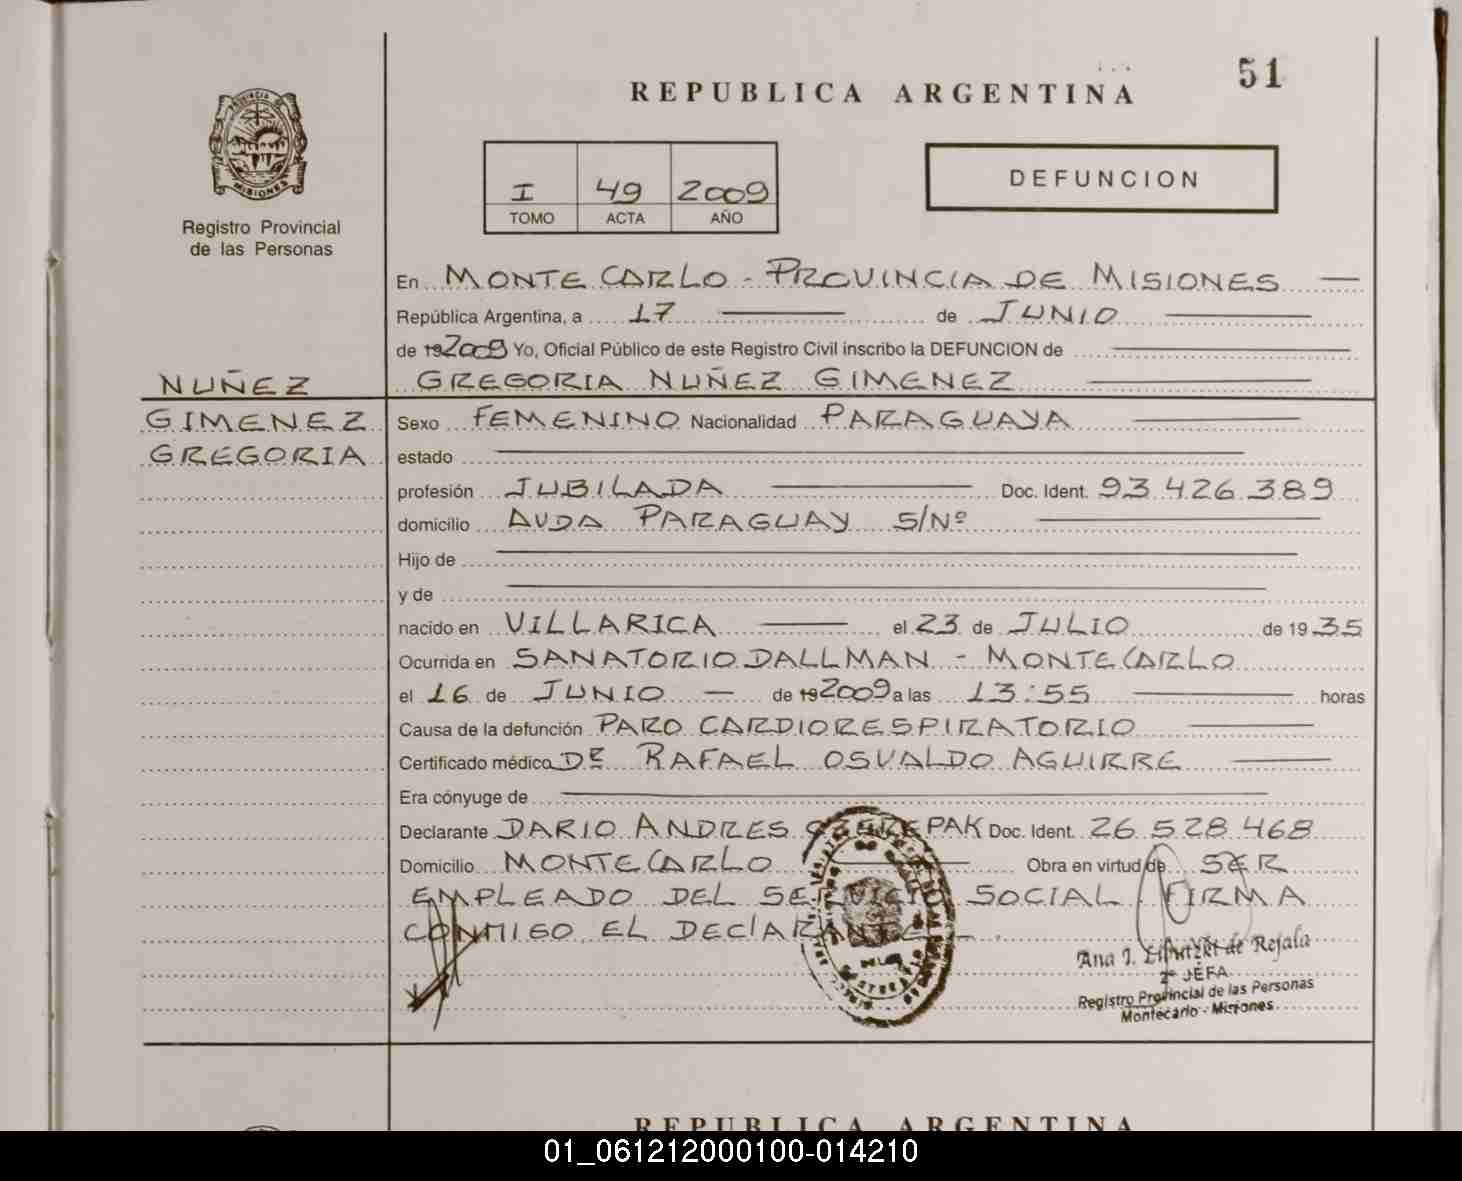 51
REPUBLICA ARGENTINA
PROVINCIA DE
MISIONES
Registro Provincial
de las Personas
I 49 2009
TOMO ACTA AÑO
DEFUNCION
En MONTECARLO - PROVINCIA DE MISIONES
República Argentina, a 17 de JUNIO
de 19 2009 Yo, Oficial Público de este Registro Civil inscribo la DEFUNCION de
NUÑEZ GREGORIA NUÑEZ GIMENEZ
GIMENEZ Sexo FEMENINO Nacionalidad PARAGUAYA
GREGORIA estado
profesión JUBILADA Doc. Ident. 93.426.389
domicilio AVDA PARAGUAY S/Nº
Hijo de
y de
nacido en VILLARICA el 23 de JULIO de 19 35
Ocurrida en SANATORIO DALLMAN - MONTECARLO
el 16 de JUNIO - de 19 2009 a las 13:55 horas
Causa de la defunción PARO CARDIORESPIRATORIO
Certificado médico DR RAFAEL OSVALDO AGUIRRE
Era cónyuge de
Declarante DARIO ANDRES Doc. Ident. 26.528.468
Domicilio MONTECARLO Obra en virtud de SER
EMPLEADO DEL SERVICIO SOCIAL. FIRMA
CONMIGO EL DECLARANTE -.
Ana I. de Rejala
2º JEFA
Registro Provincial de las Personas
Montecarlo - Misiones
REPUBLICA ARGENTINA
01_061212000100-014210